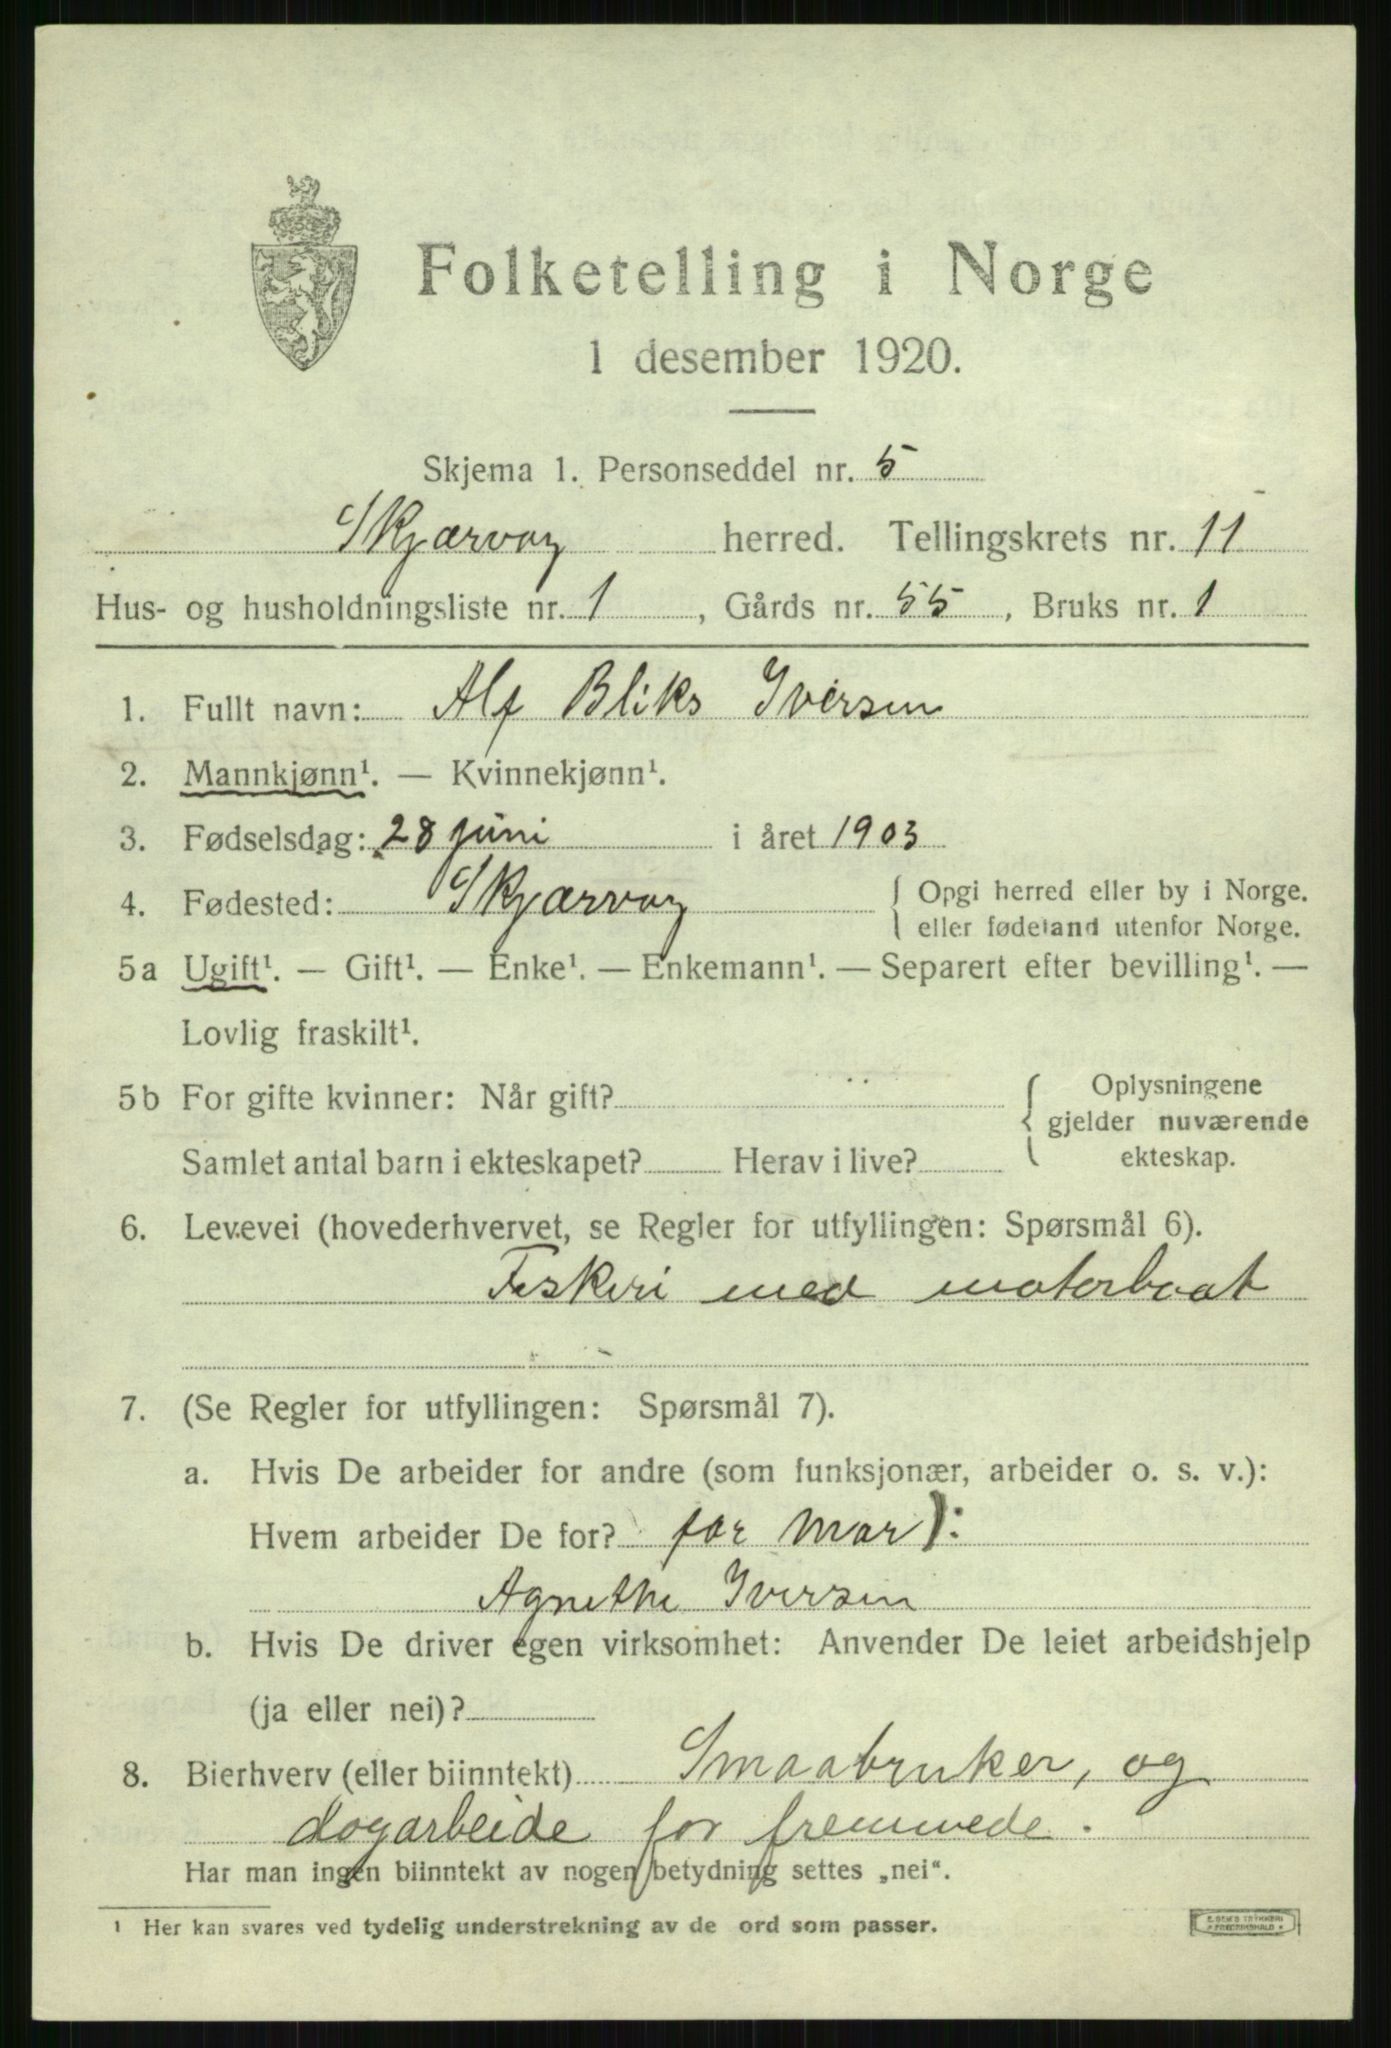 Folketelling i Norge
1 desember 1920.
Skjema 1. Personseddel nr. 5
Skjærvøy herred. Tellingskrets nr. 11
Hus- og husholdningsliste nr. 1, Gårds nr. 55, Bruks nr. 1
1. Fullt navn: Alf Bliks Iversen
2. Mannkjønn¹. — Kvinnekjønn¹.
3. Fødselsdag: 28 juni i året 1903
4. Fødested: Skjærvøy { Opgi herred eller by i Norge.
eller fødeland utenfor Norge.
5a Ugift¹. — Gift¹. — Enke¹. — Enkemann¹. — Separert efter bevilling¹. —
Lovlig fraskilt¹.
5b For gifte kvinner: Når gift? { Oplysningene
gjelder nuværende
Samlet antal barn i ekteskapet? Herav i live? ekteskap.
6. Levevei (hovederhvervet, se Regler for utfyllingen: Spørsmål 6).
Fiskeri med motorbaat
7. (Se Regler for utfyllingen: Spørsmål 7).
a. Hvis De arbeider for andre (som funksjonær, arbeider o. s. v.):
Hvem arbeider De for? for Mor):
Agnethe Iversen
b. Hvis De driver egen virksomhet: Anvender De leiet arbeidshjelp
(ja eller nei)?
8. Bierhverv (eller biinntekt) Smaabruker, og
dagarbeide for fremmede.
Har man ingen biinntekt av nogen betydning settes „nei“.
¹ Her kan svares ved tydelig understrekning av de ord som passer.